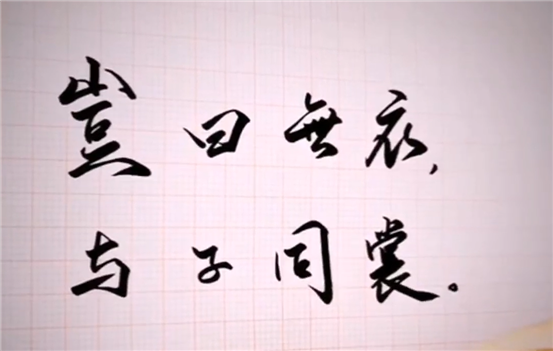 豈曰無衣,
与子同裳。